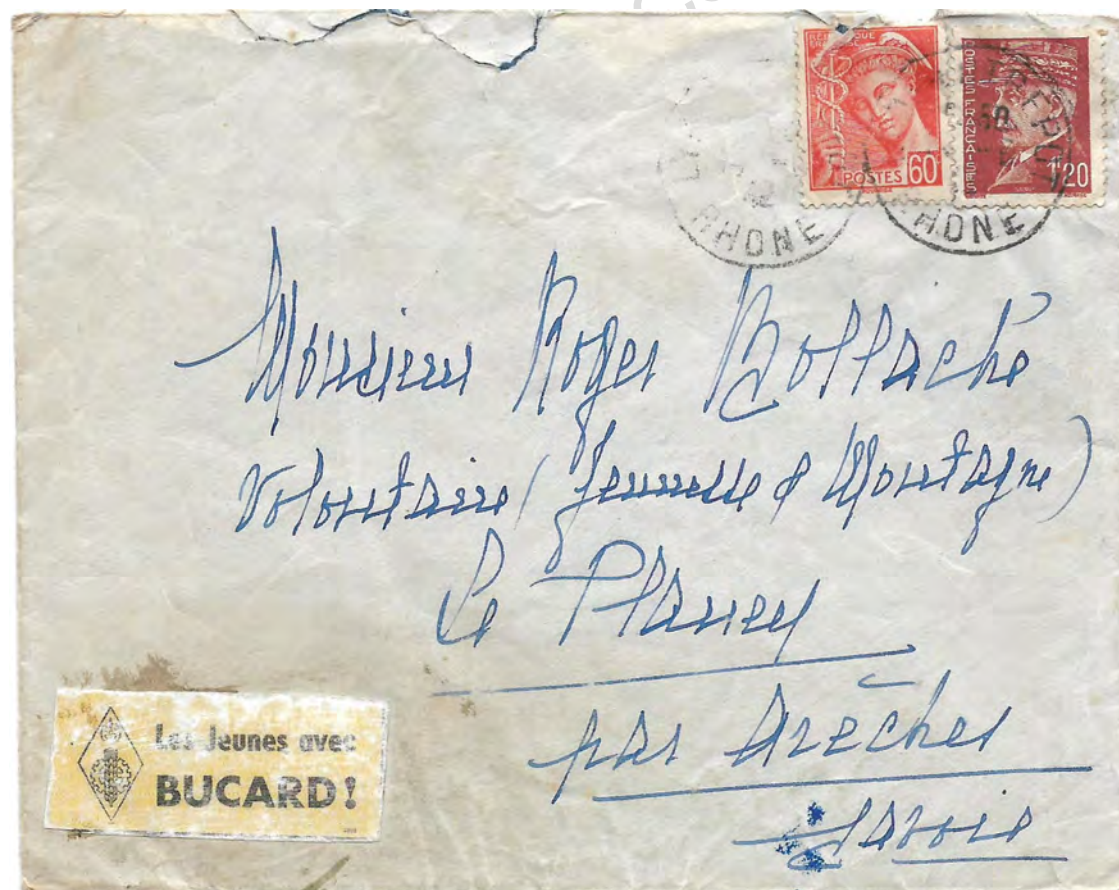 RÉPUBLIQUE
FRANÇAISE
POSTES 60
POSTES FRANÇAISES
1F20
42
RHONE
RHONE
Monsieur Roger
Volontaire (Jeunesse & Montagne)
Le Planey
par Arèches
Savoie
Les Jeunes avec
BUCARD!